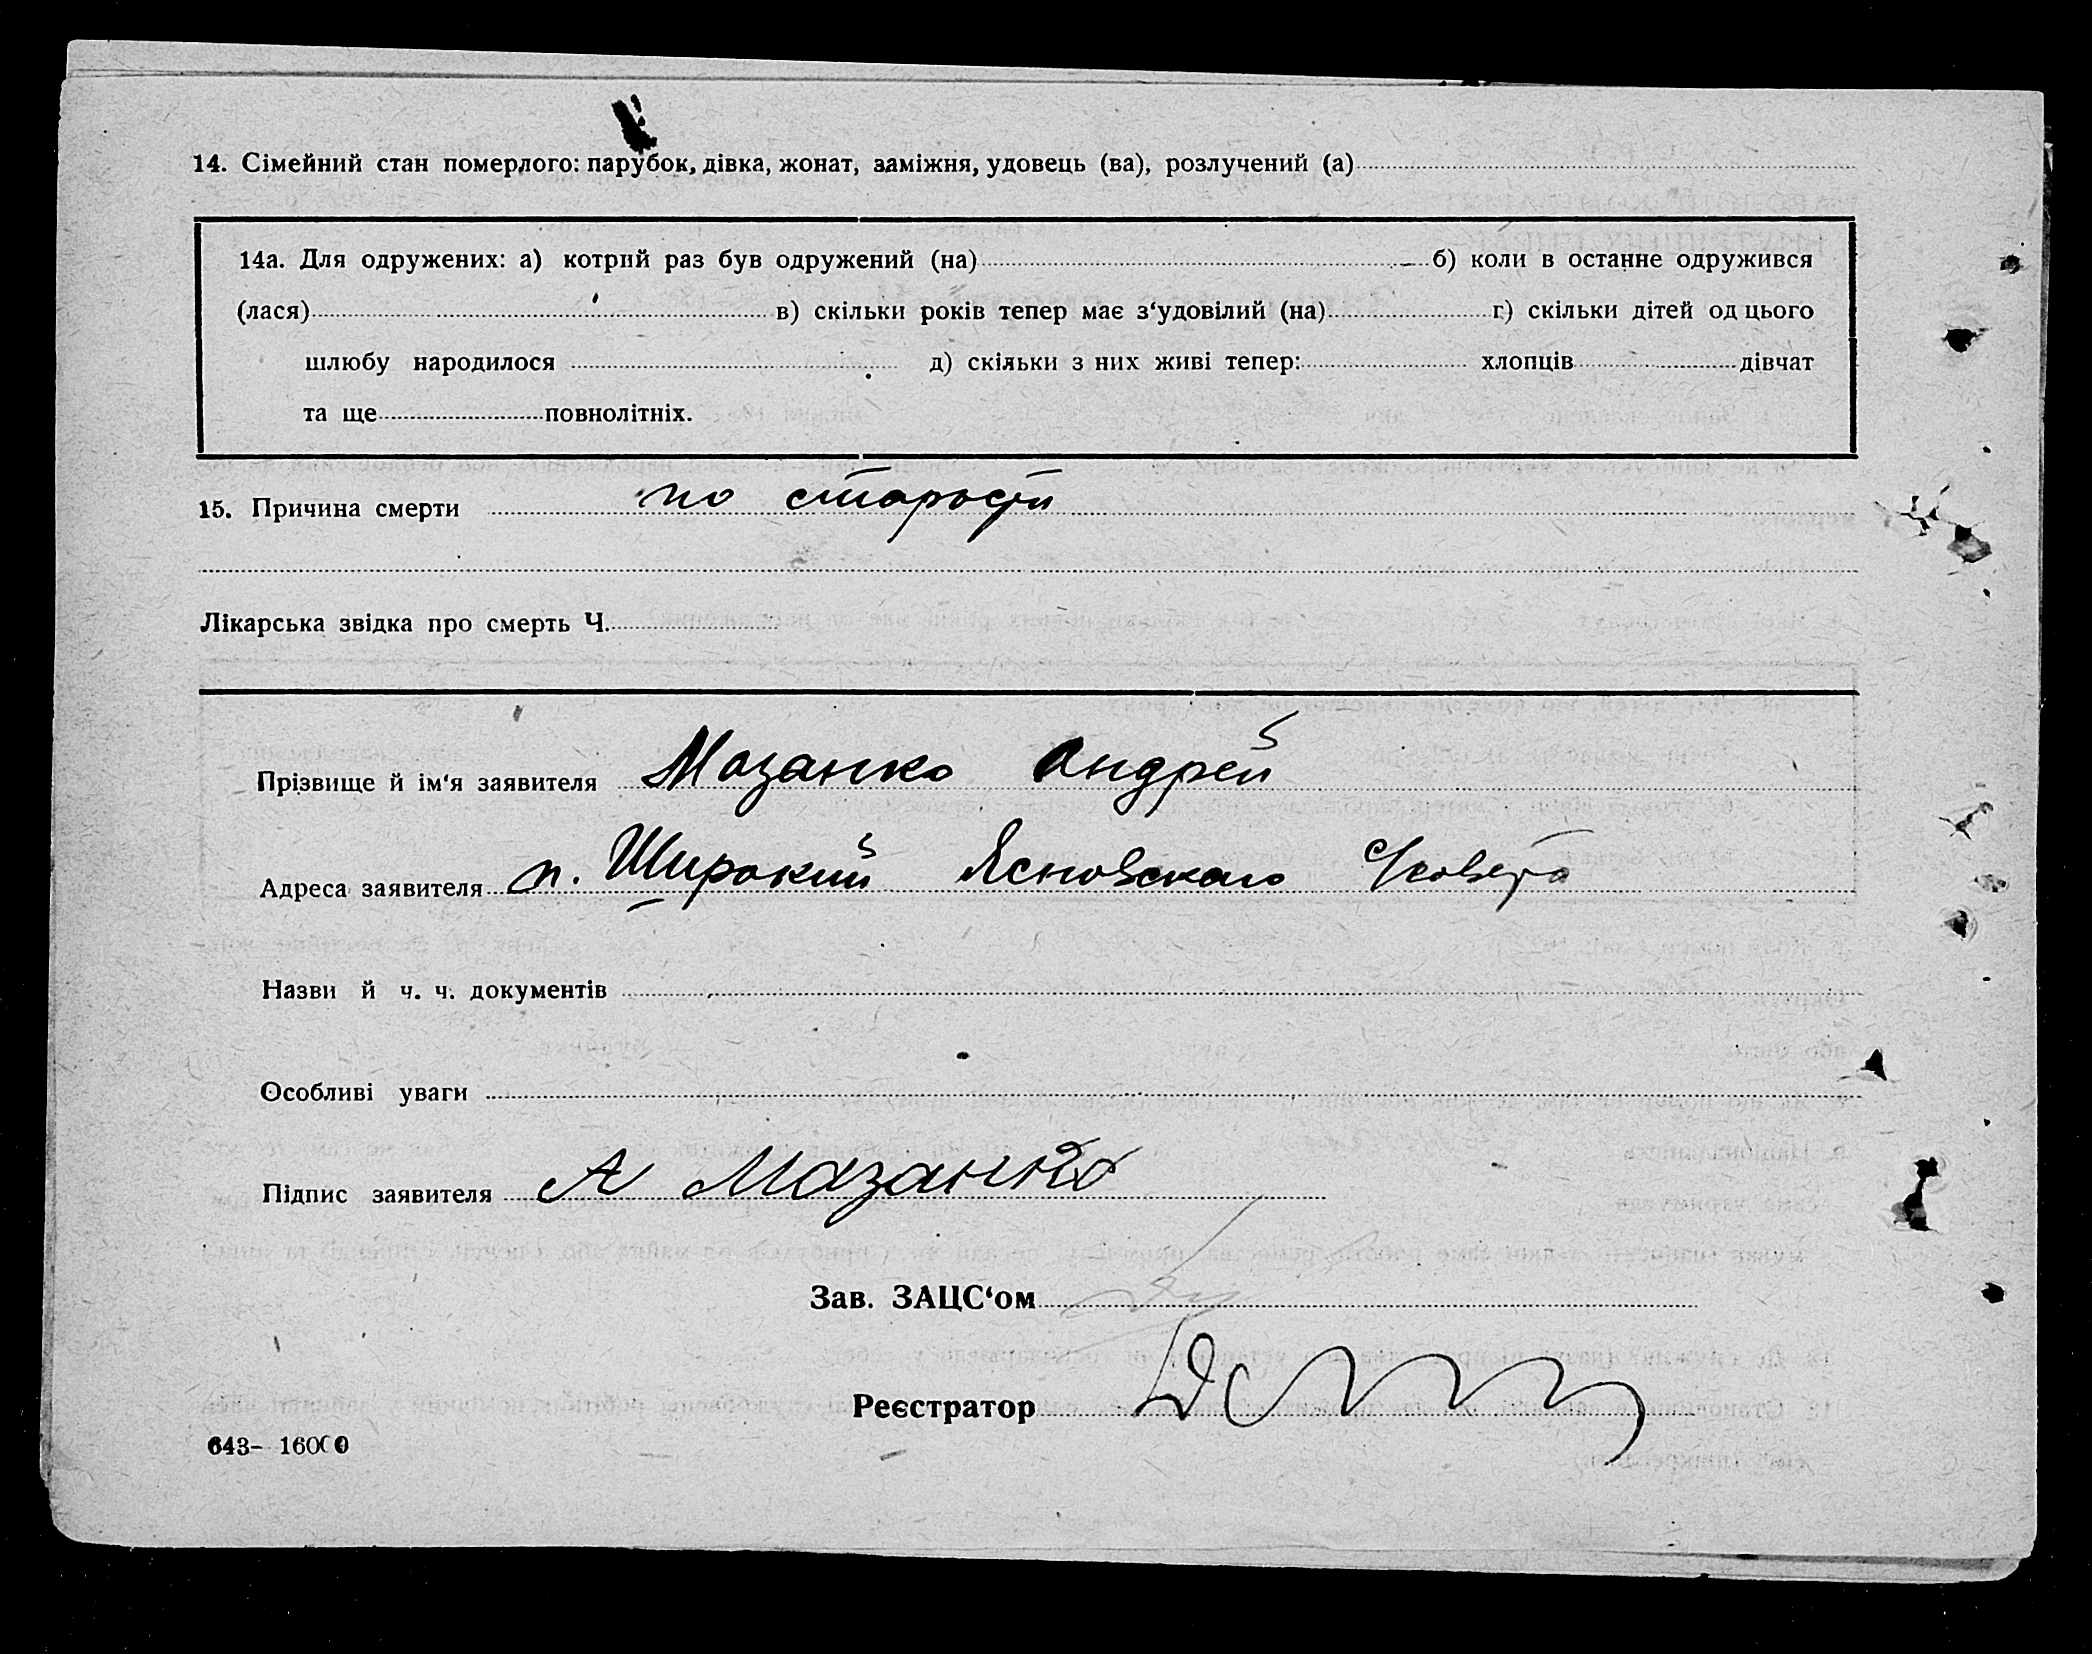 14. Сімейний стан померлого: парубок, дівка, жонат, заміжня, удовець (ва), розлучений (а)
14а. Для одружених: а) котрий раз був одружений (на) б) коли в останне одружився
(лася) в) скільки років тепер має з‘удовілий (на) г) скільки дітей од цього
шлюбу народилося д) скільки з них живі тепер: хлопців дівчат
та ще повнолітніх.
15. Причина смерти по старости
Лікарська звідка про смерть Ч.
Прізвище й ім‘я заявителя Мазанко Андрей
Адреса заявителя п. Широкий Ясновскаго
Назви й ч. ч. документів
Особливі уваги
Підпис заявителя А Мазанко
Зав. ЗАЦС‘ом
Реєстратор
643- 16000